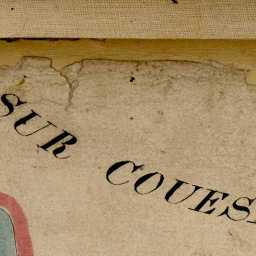 SUR COUES